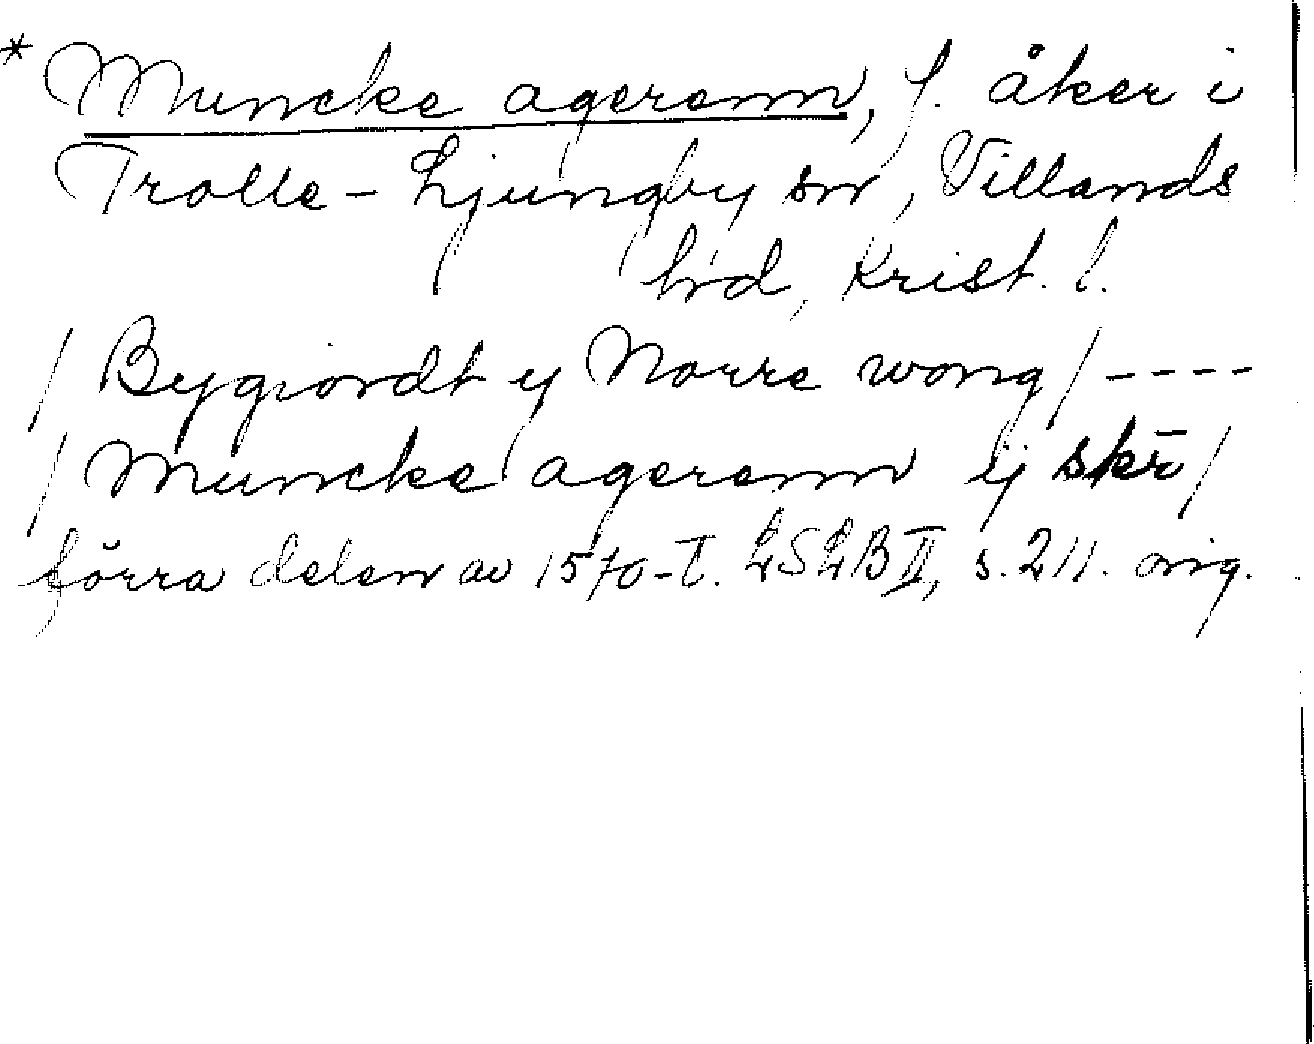 * Muncke agerenn, f. åker i
Trolle-Ljungby sn, Villands
hd, Krist. l.
/ Bygiordt y Norre wong / ----
/ Muncke agerenn ij skr̄ /
förra delen av 1570-t. LSLB II, s. 211. orig.